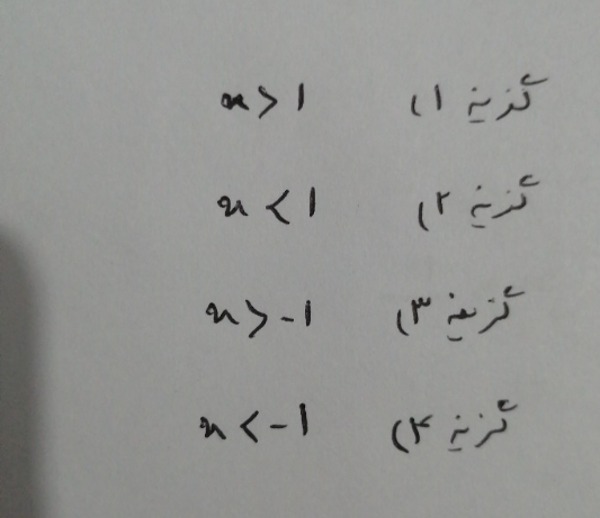 گزینه ۱) x > 1
گزینه ۲) x < 1
گزینه ۳) x > -1
گزینه ۴) x < -1